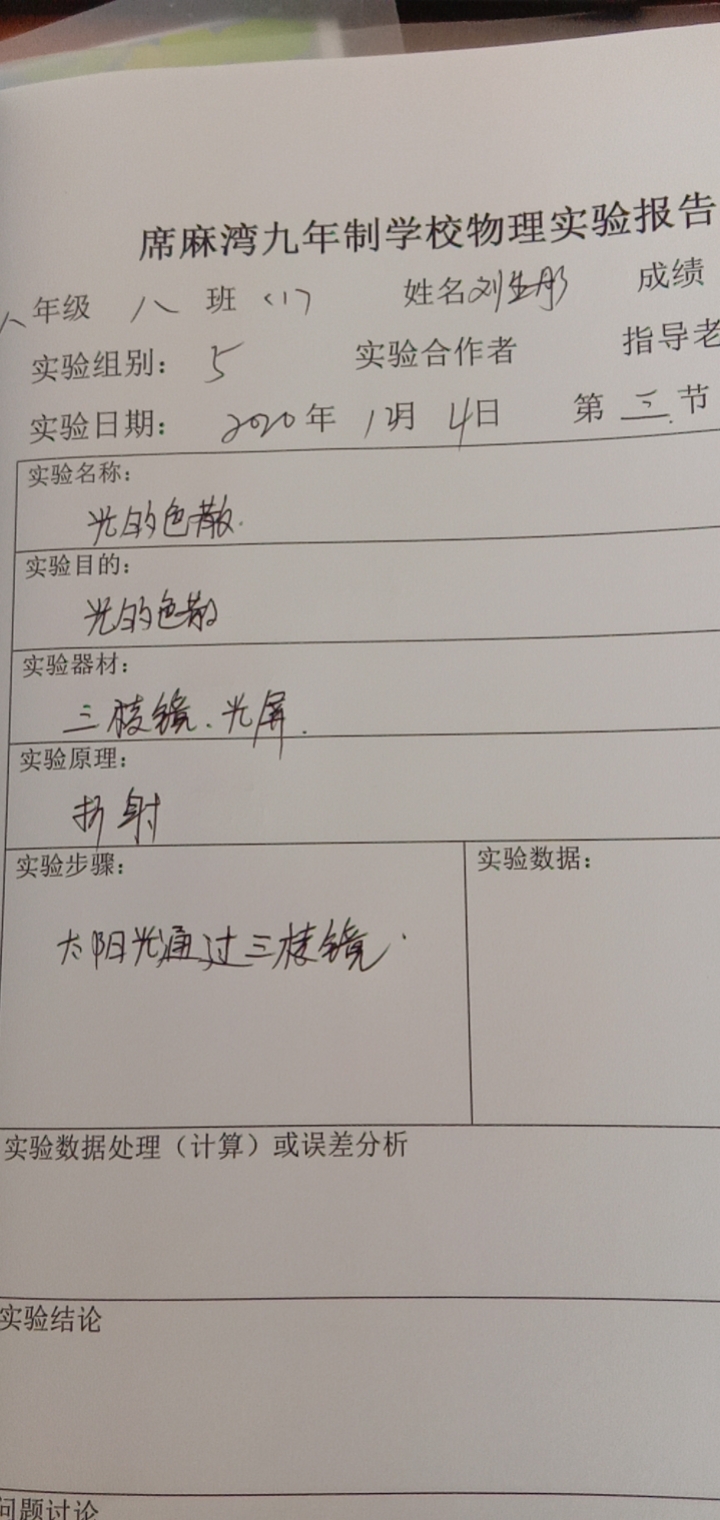 席麻湾九年制学校物理实验报告
八年级 八 班 (1) 姓名 刘生彤 成绩
实验组别： 5 实验合作者 指导老
实验日期： 2020年 12月 4日 第 三 节
实验名称：
光的色散.
实验目的：
光的色散
实验器材：
三棱镜、光屏.
实验原理：
折射
实验步骤： 实验数据：
太阳光通过三棱镜.
实验数据处理（计算）或误差分析
实验结论
问题讨论